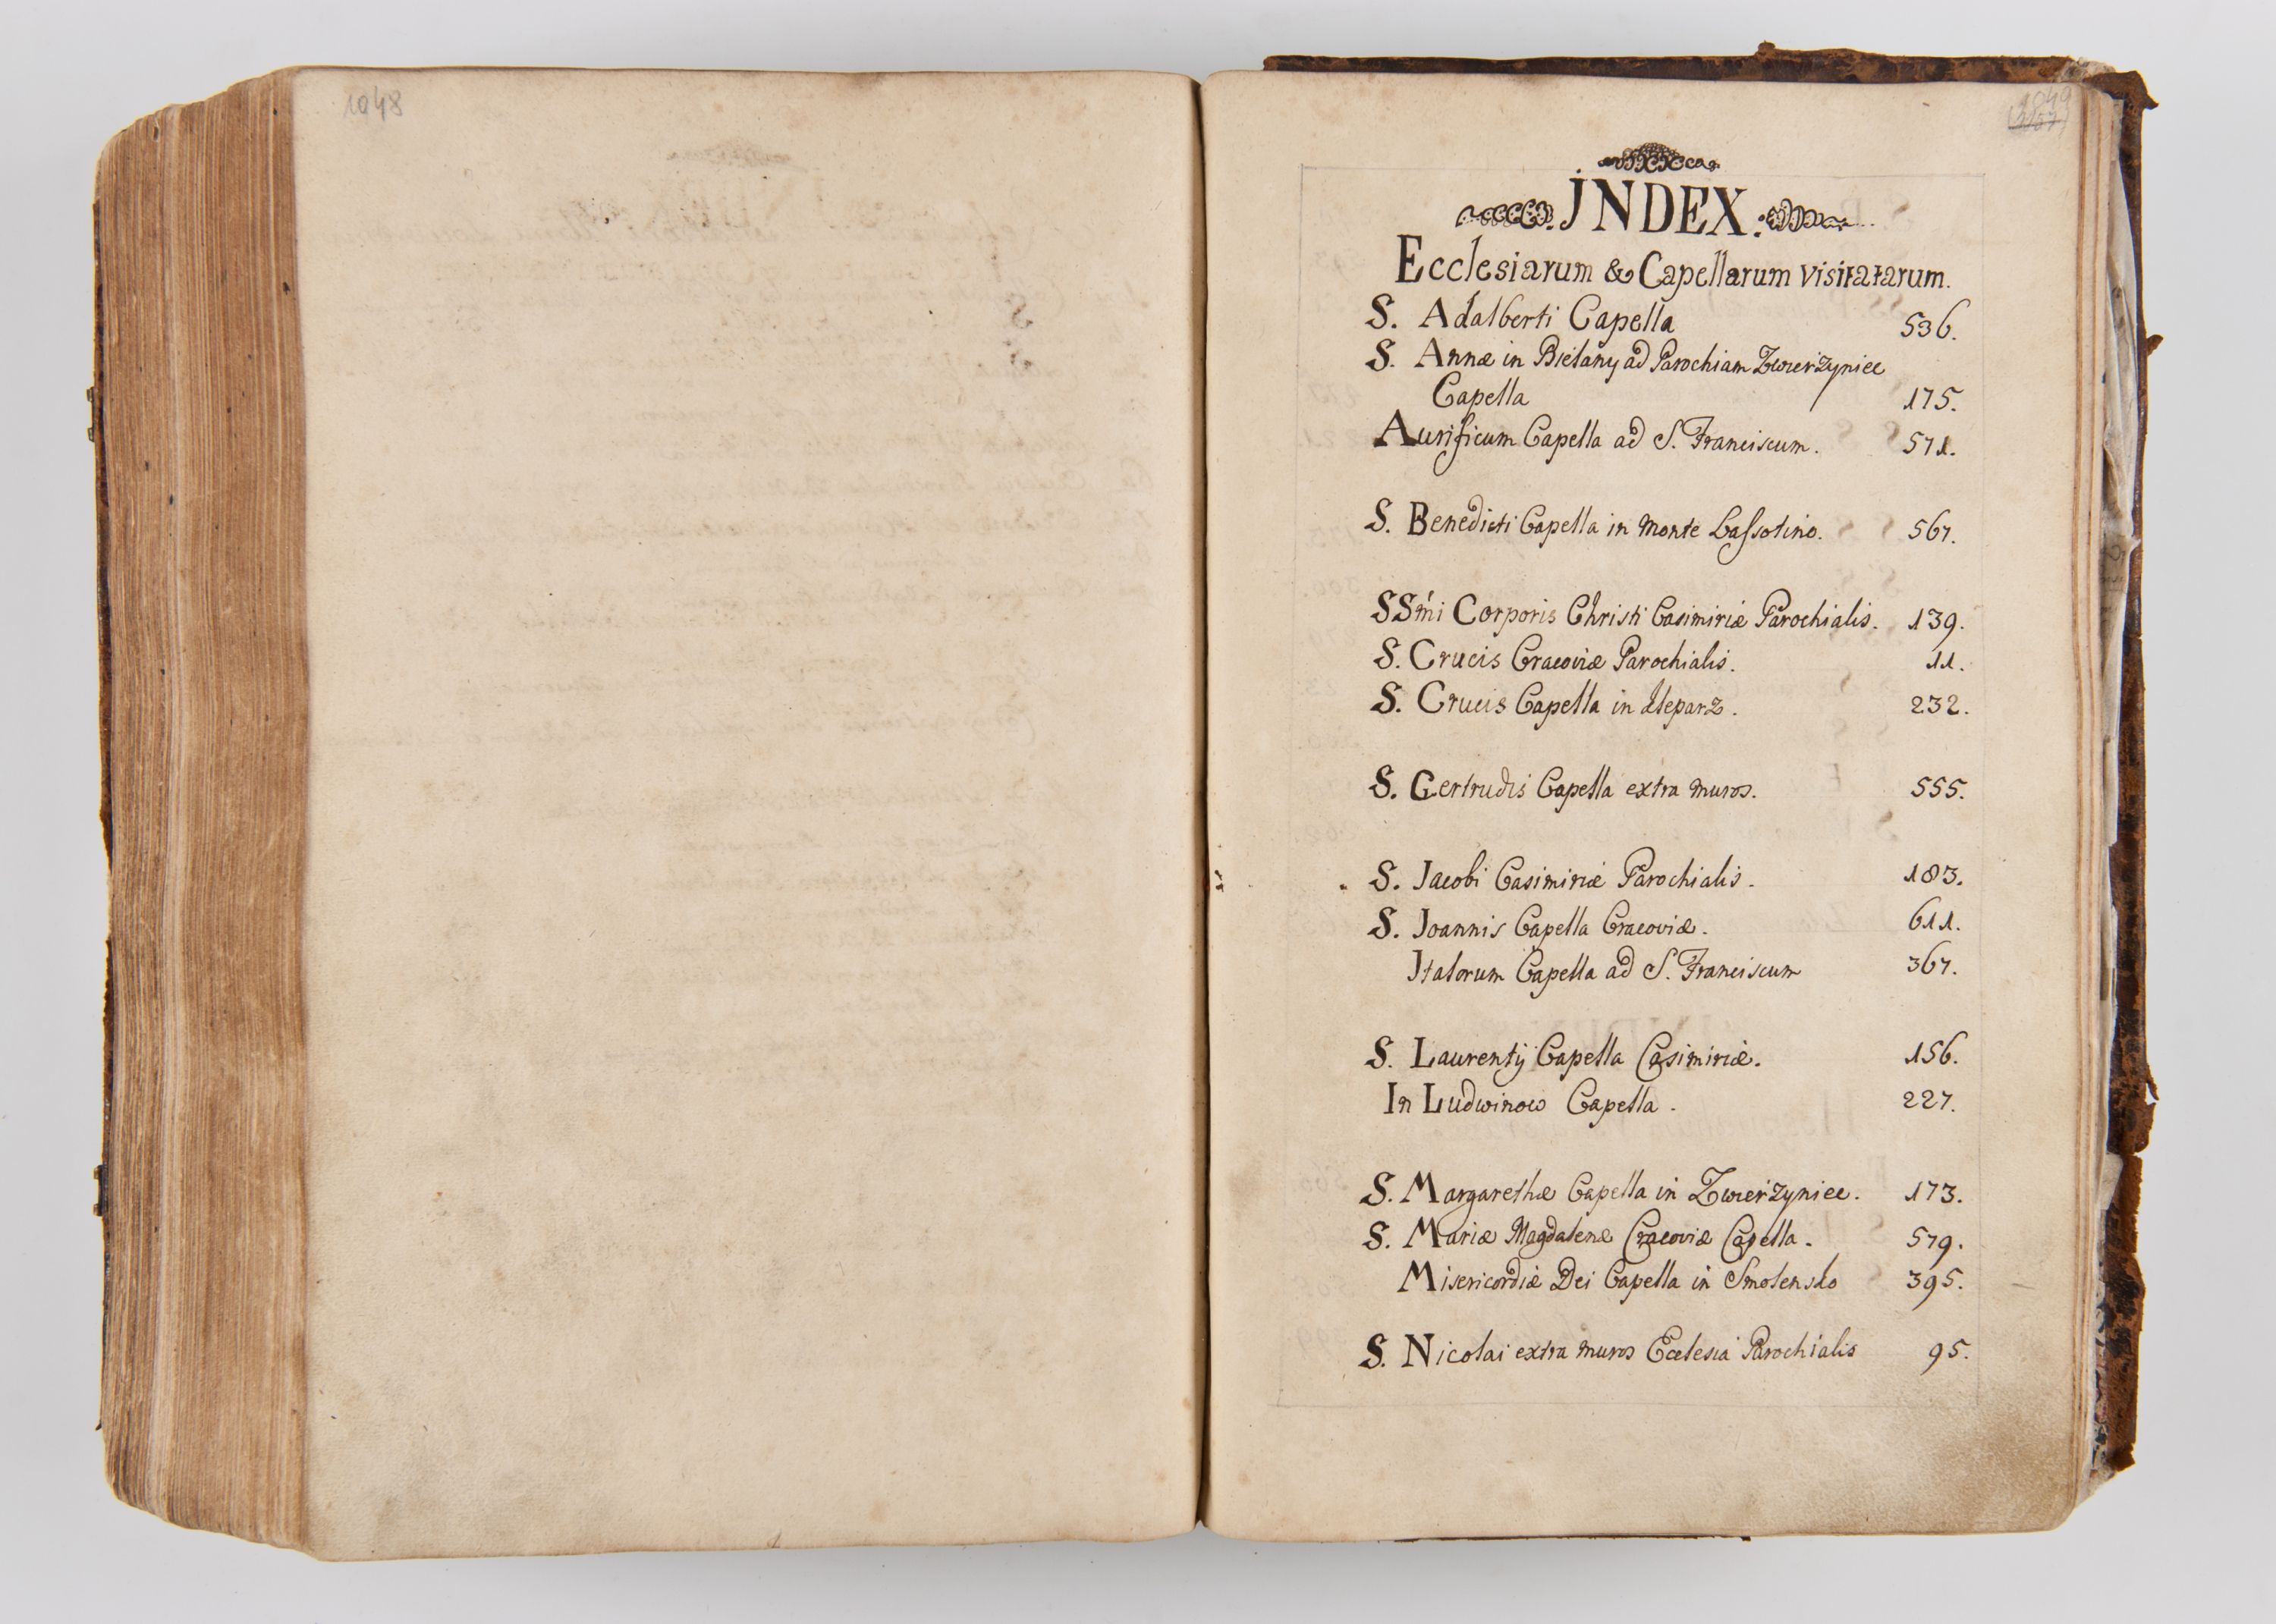 1048
JNDEX.
Ecclesiarum & Capellarum visitatarum.
S. Adalberti Capella 536.
S. Annæ in Bielany ad Parochiam Zwierzyniec
Capella 175.
Aurificum Capella ad S. Franciscum. 571.
S. Benedicti Capella in Monte Lassotino. 567.
SSmi Corporis Christi Casimiriæ Parochialis. 139.
S. Crucis Cracoviæ Parochialis. 11.
S. Crucis Capella in Kleparz. 232.
S. Gertrudis Capella extra muros. 555.
S. Jacobi Casimiriæ Parochialis. 183.
S. Joannis Capella Cracoviæ. 611.
Jtalorum Capella ad S. Franciscum 367.
S. Laurentij Capella Casimiriæ. 156.
In Ludwinow Capella. 227.
S. Margarethæ Capella in Zwierzyniec. 173.
S. Mariæ Magdalenæ Cracoviæ Capella. 579.
Misericordiæ Dei Capella in Smolensko 395.
S. Nicolai extra muros Ecclesia Parochialis 95.